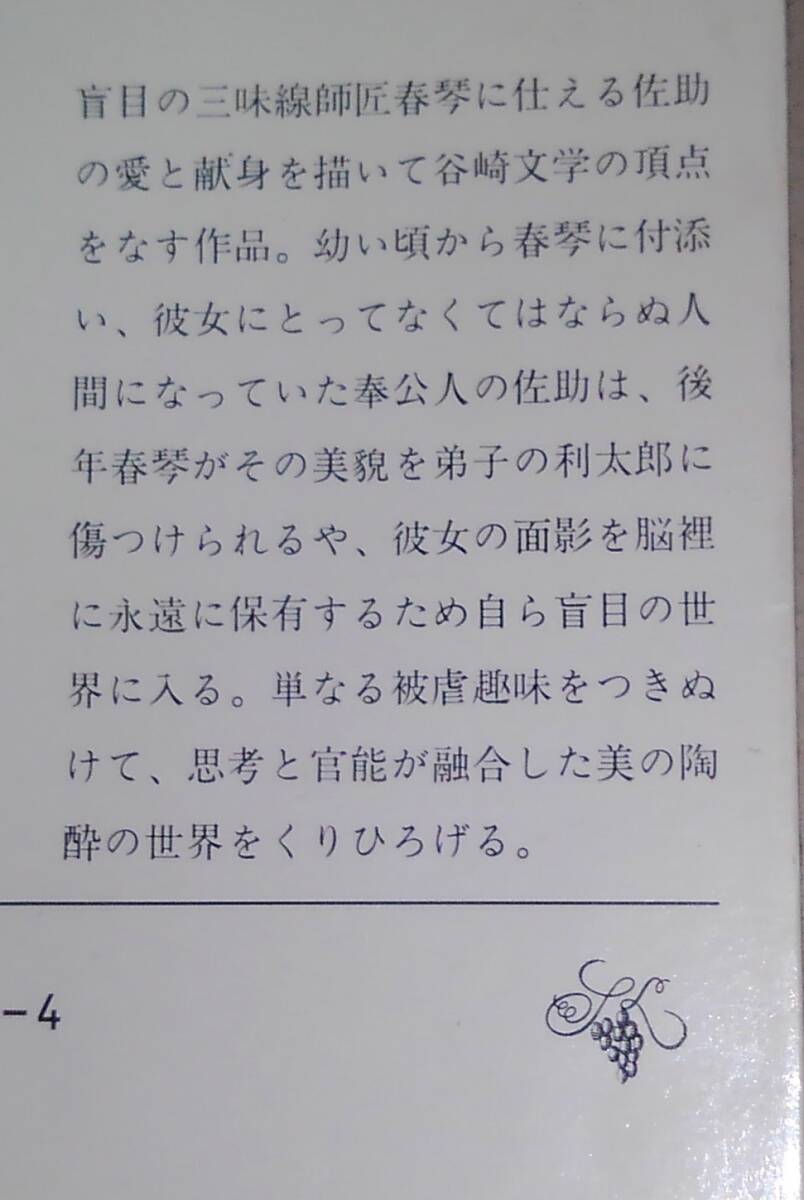 盲目の三味線師匠春琴に仕える佐助
の愛と献身を描いて谷崎文学の頂点
をなす作品。幼い頃から春琴に付添
い、彼女にとってなくてはならぬ人
間になっていた奉公人の佐助は、後
年春琴がその美貌を弟子の利太郎に
傷つけられるや、彼女の面影を脳裡
に永遠に保有するため自ら盲目の世
界に入る。単なる被虐趣味をつきぬ
けて、思考と官能が融合した美の陶
酔の世界をくりひろげる。
-4
SK